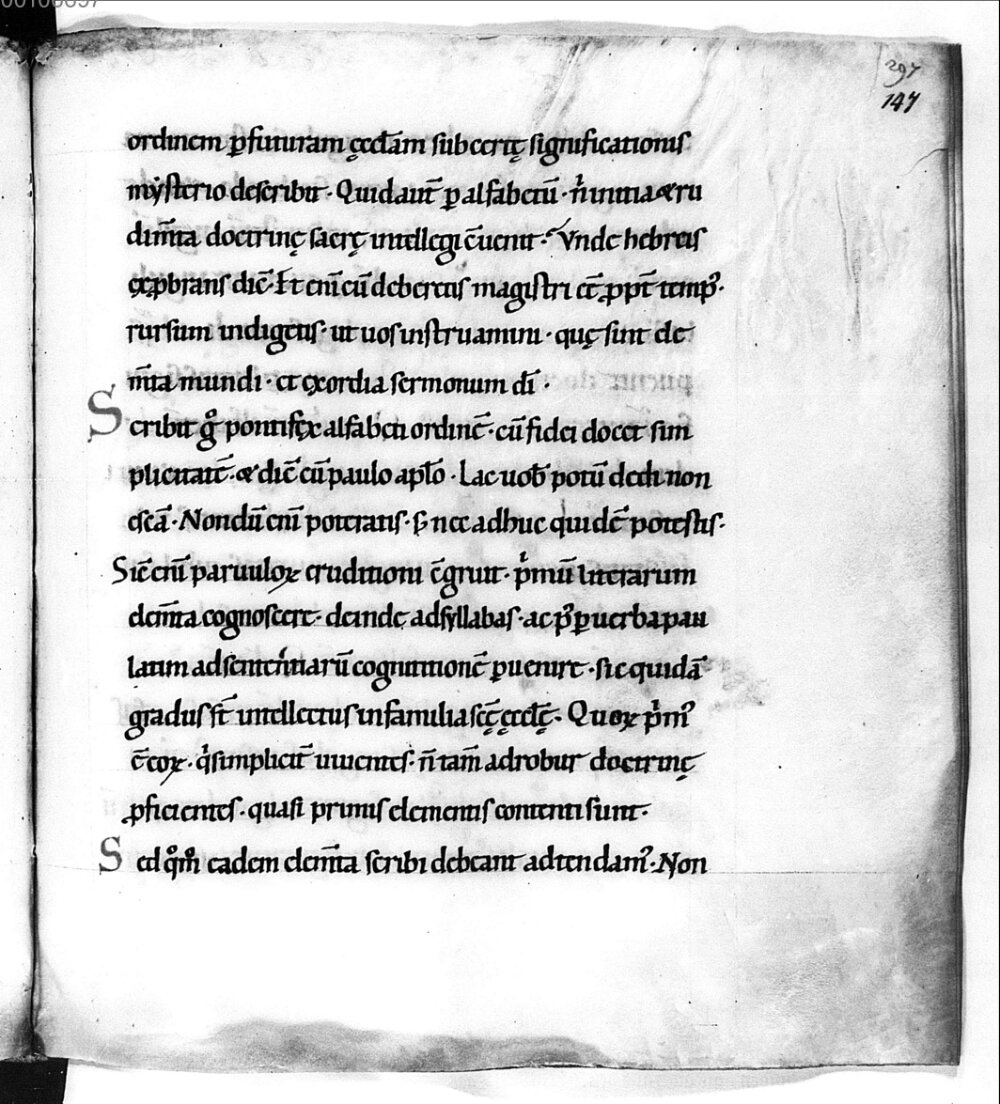 00106697
297
147
ordinem ꝑfuturam ęccłam sub certę significationis
mẏsterio describit · Quid aut̄ ꝑ alfabetū · n̄ initia & ru
dim̄ta doctrinę sacrę intellegi c̄uenit · Vnde hebreis
exp̱brans dic̄ · Et eni̅ cū deberetis magistri ēē ꝓpt̄ temp᷒ ·
rursum indigetis · ut uos instruamini · quę sint ele
m̄ta mundi · et exordia sermonum dī ·
Scribit g̊ pontifex alfabeti ordinē · cū fidei docet sim
plicitatē · & dic̄ cū paulo apłō · Lac uob̄ potū dedi non
escā · Nondū eni̅ poteratis · s; nec adhuc quidē potestis ·
Sic̄ eni̅ paruuloꝝ eruditioni c̄gruit · pⁱmū litterarum
elem̄ta cognoscere · deinde ad syllabas · ac p᷒ ꝑ uerba pau
latim ad sententiarū cognitionē ꝑuenire · sic quidā
gradus st̄ intellectus in familia sc̄ę ęccłę · Quoꝝ pⁱm᷒
ē eoꝝ · qⁱ simplicit̄ uiuentes · n̄ tam̄ ad robur doctrinę
ꝓficientes · quasi primis elementis contenti sunt ·
Sed qm̊ eadem elem̄ta scribi debeant adtendam᷒ · Non